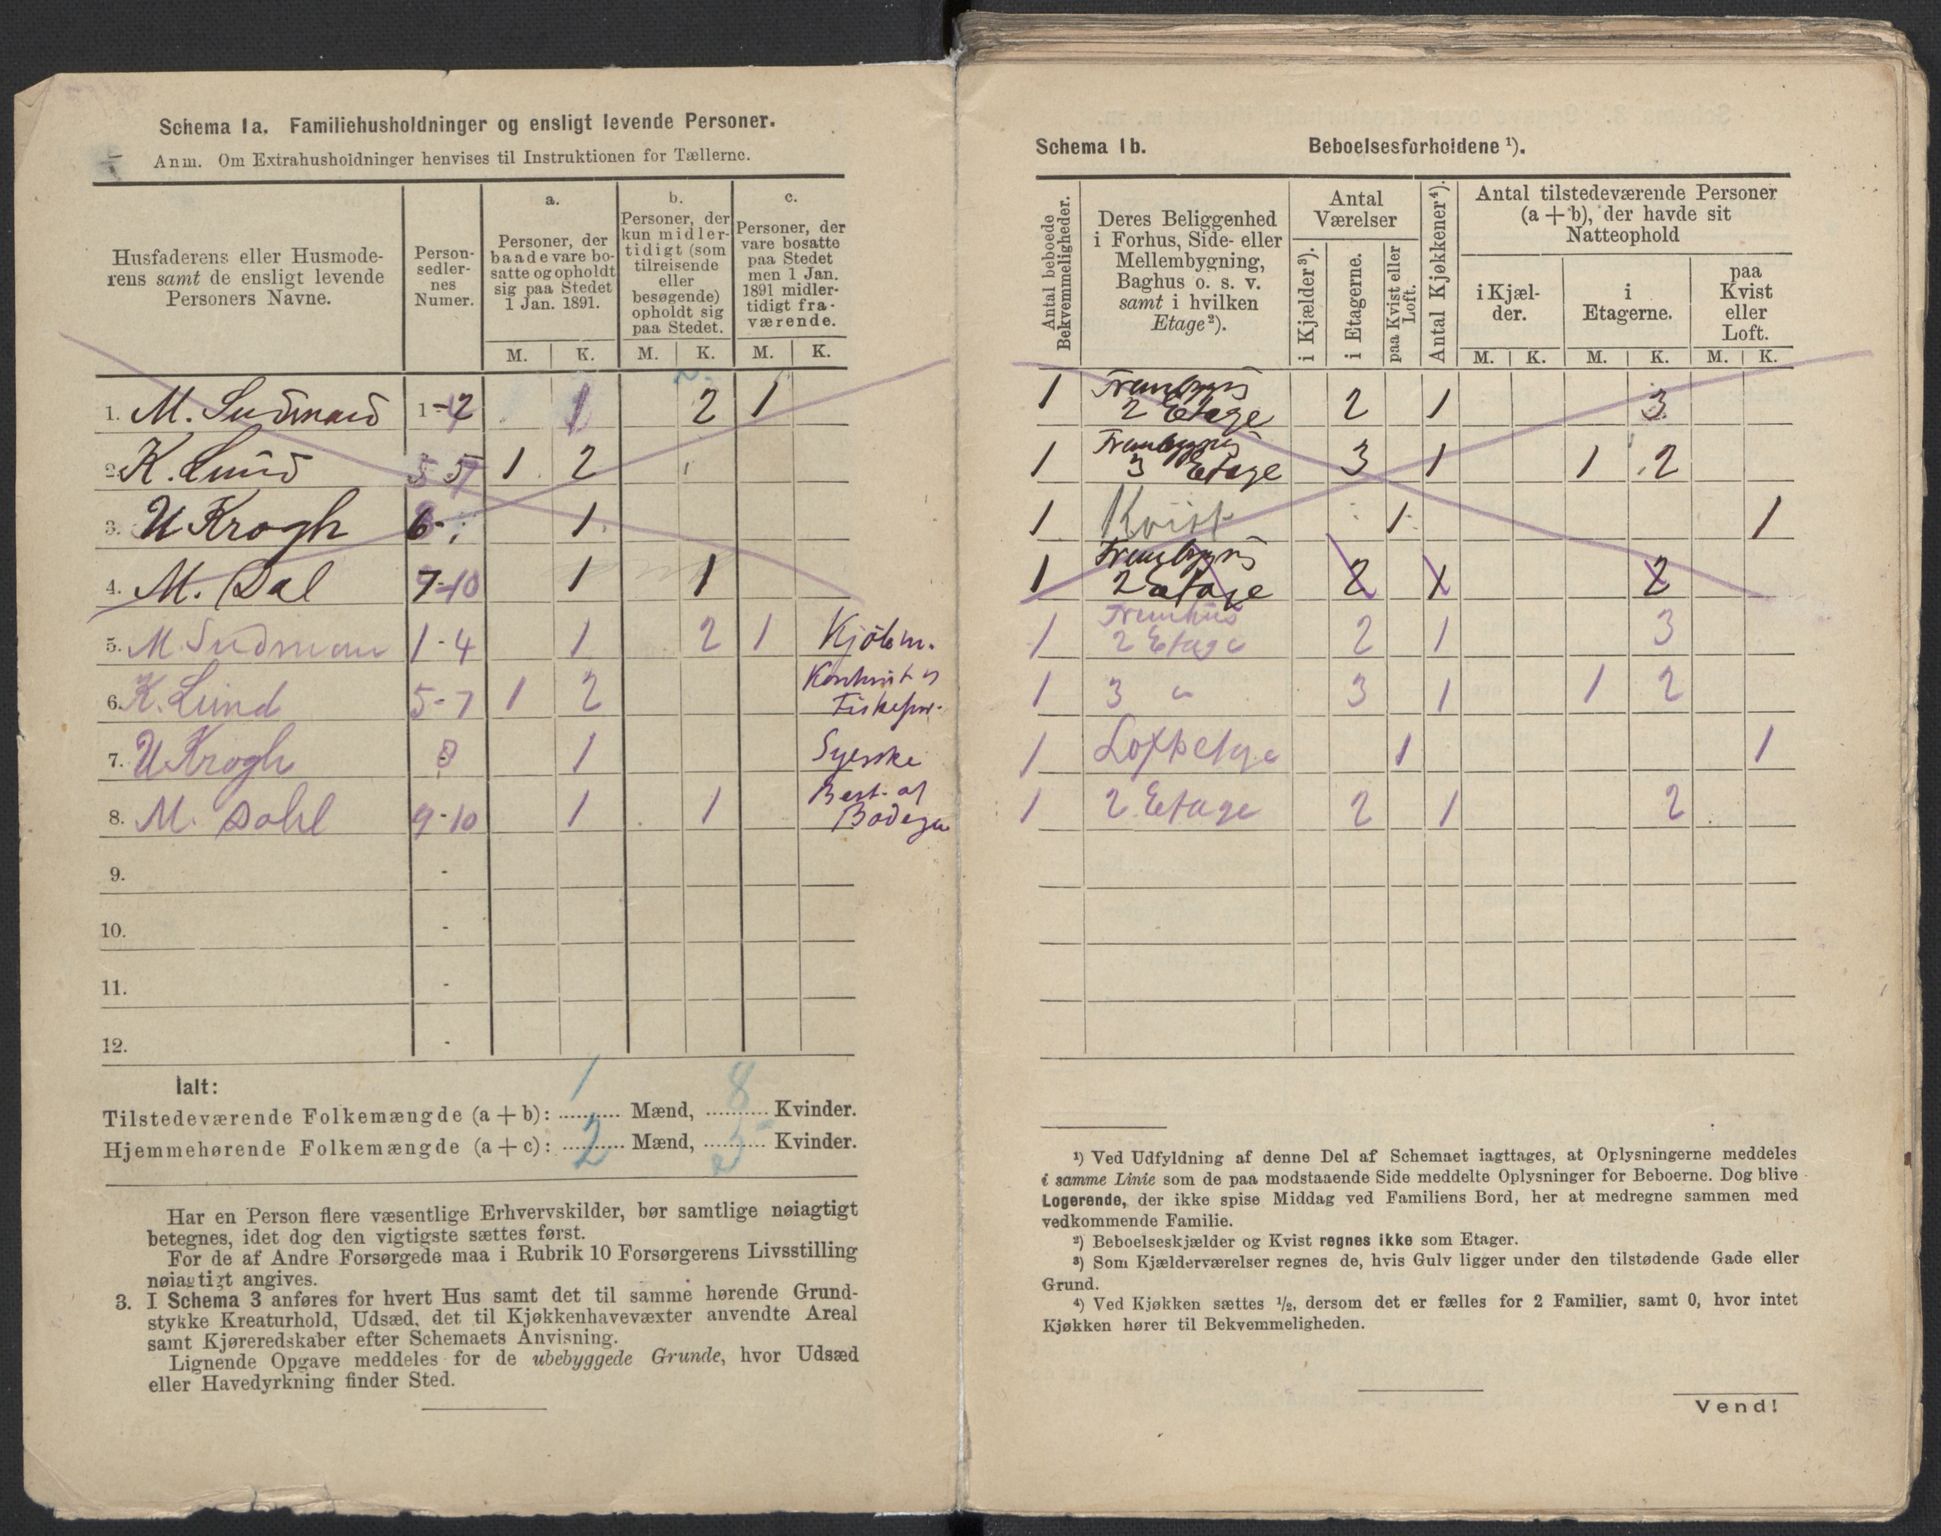 Schema 1a. Familiehusholdninger og ensligt levende Personer.
Anm. Om Extrahusholdninger henvises til Instruktionen for Tællerne.
Husfaderens eller Husmode-
rens samt de ensligt levende
Personers Navne.
Person-
sedler-
nes
Numer.
a.
Personer, der
baade vare bo-
satte og opholdt
sig paa Stedet
1 Jan. 1891.
b.
Personer, der
kun midler-
tidigt (som
tilreisende
eller
besøgende)
opholdt sig
paa Stedet.
c.
Personer, der
vare bosatte
paa Stedet
men 1 Jan.
1891 midler-
tidigt fra-
værende.
M. K. M. K. M. K.
1. M. Sudmand 1-2 1 2 1
2. K. Lund 5 7 1 2
3. U Krogh 6- 1
4. M. Dal 7-10 1 1
5. M. Sudman 1-4 1 2 1 Kjøbm.
6. K. Lund 5-7 1 2
7. U Krogh 8 1 Syerske
8. M. Dahl 9-10 1 1 Best. af
Bodega
9. -
10. -
11. -
12. -
Ialt:
Tilstedeværende Folkemængde (a + b): 1 Mænd, 8 Kvinder.
Hjemmehørende Folkemængde (a + c): 2 Mænd, 5 Kvinder.
Har en Person flere væsentlige Erhvervskilder, bør samtlige nøiagtigt
betegnes, idet dog den vigtigste sættes først.
For de af Andre Forsørgede maa i Rubrik 10 Forsørgerens Livsstilling
nøiagtigt angives.
3. I Schema 3 anføres for hvert Hus samt det til samme hørende Grund-
stykke Kreaturhold, Udsæd, det til Kjøkkenhavevæxter anvendte Areal
samt Kjøreredskaber efter Schemaets Anvisning.
Lignende Opgave meddeles for de ubebyggede Grunde, hvor Udsæd
eller Havedyrkning finder Sted.
Schema 1b. Beboelsesforholdene ¹).
Antal beboede
Bekvemmeligheder.
Deres Beliggenhed
i Forhus, Side- eller
Mellembygning,
Baghus o. s. v.
samt i hvilken
Etage ²).
Antal
Værelser
i Kjælder ³).
i Etagerne.
paa Kvist eller
Loft.
Antal Kjøkkener ⁴).
Antal tilstedeværende Personer
(a + b), der havde sit
Natteophold
i Kjæl-
der.
i
Etagerne.
paa
Kvist
eller
Loft.
M. K. M. K. M. K.
1 Frembygn
2 Etage 2 1 3
1 Frembygn
3 Etage 3 1 1 2
1 Kvist 1 1
1 Frembygn
2 Etage 2 1 2
1 Fremhus
2 Etage 2 1 3
1 3 " 3 1 1 2
1 Loftetage 1 1
1 2 Etage 2 1 2
¹) Ved Udfyldning af denne Del af Schemaet iagttages, at Oplysningerne meddeles
i samme Linie som de paa modstaaende Side meddelte Oplysninger for Beboerne. Dog blive
Logerende, der ikke spise Middag ved Familiens Bord, her at medregne sammen med
vedkommende Familie.
²) Beboelseskjælder og Kvist regnes ikke som Etager.
³) Som Kjælderværelser regnes de, hvis Gulv ligger under den tilstødende Gade eller
Grund.
⁴) Ved Kjøkken sættes ½, dersom det er fælles for 2 Familier, samt 0, hvor intet
Kjøkken hører til Bekvemmeligheden.
Vend!